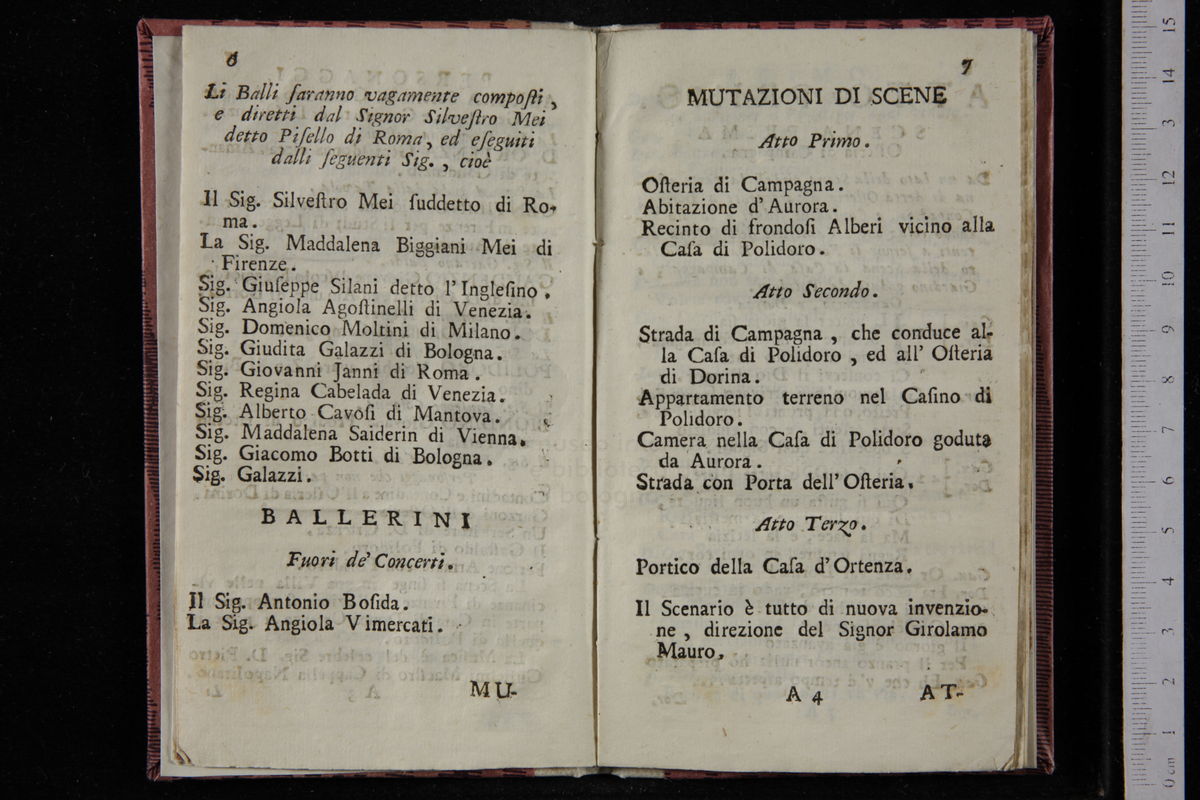 6
Li Balli ſaranno vagamente compoſti,
e diretti dal Signor Silveſtro Mei
detto Piſello di Roma, ed eſeguiti
dalli ſeguenti Sig., cioè
Il Sig. Silveſtro Mei ſuddetto di Ro-
ma.
La Sig. Maddalena Biggiani Mei di
Firenze.
Sig. Giuſeppe Silani detto l'Ingleſino.
Sig. Angiola Agoſtinelli di Venezia.
Sig. Domenico Moltini di Milano.
Sig. Giudita Galazzi di Bologna.
Sig. Giovanni Janni di Roma.
Sig. Regina Cabelada di Venezia.
Sig. Alberto Cavoſi di Mantova.
Sig. Maddalena Saiderin di Vienna.
Sig. Giacomo Botti di Bologna.
Sig. Galazzi.
BALLERINI
Fuori de' Concerti.
Il Sig. Antonio Boſida.
La Sig. Angiola Vimercati.
MU-
7
MUTAZIONI DI SCENE
Atto Primo.
Oſteria di Campagna.
Abitazione d'Aurora.
Recinto di frondoſi Alberi vicino alla
Caſa di Polidoro.
Atto Secondo.
Strada di Campagna, che conduce al-
la Caſa di Polidoro, ed all' Oſteria
di Dorina.
Appartamento terreno nel Caſino di
Polidoro.
Camera nella Caſa di Polidoro goduta
da Aurora.
Strada con Porta dell' Oſteria.
Atto Terzo.
Portico della Caſa d'Ortenza.
Il Scenario è tutto di nuova invenzio-
ne, direzione del Signor Girolamo
Mauro.
A 4 AT-
0 cm 1 2 3 4 5 6 7 8 9 10 11 12 13 14 15